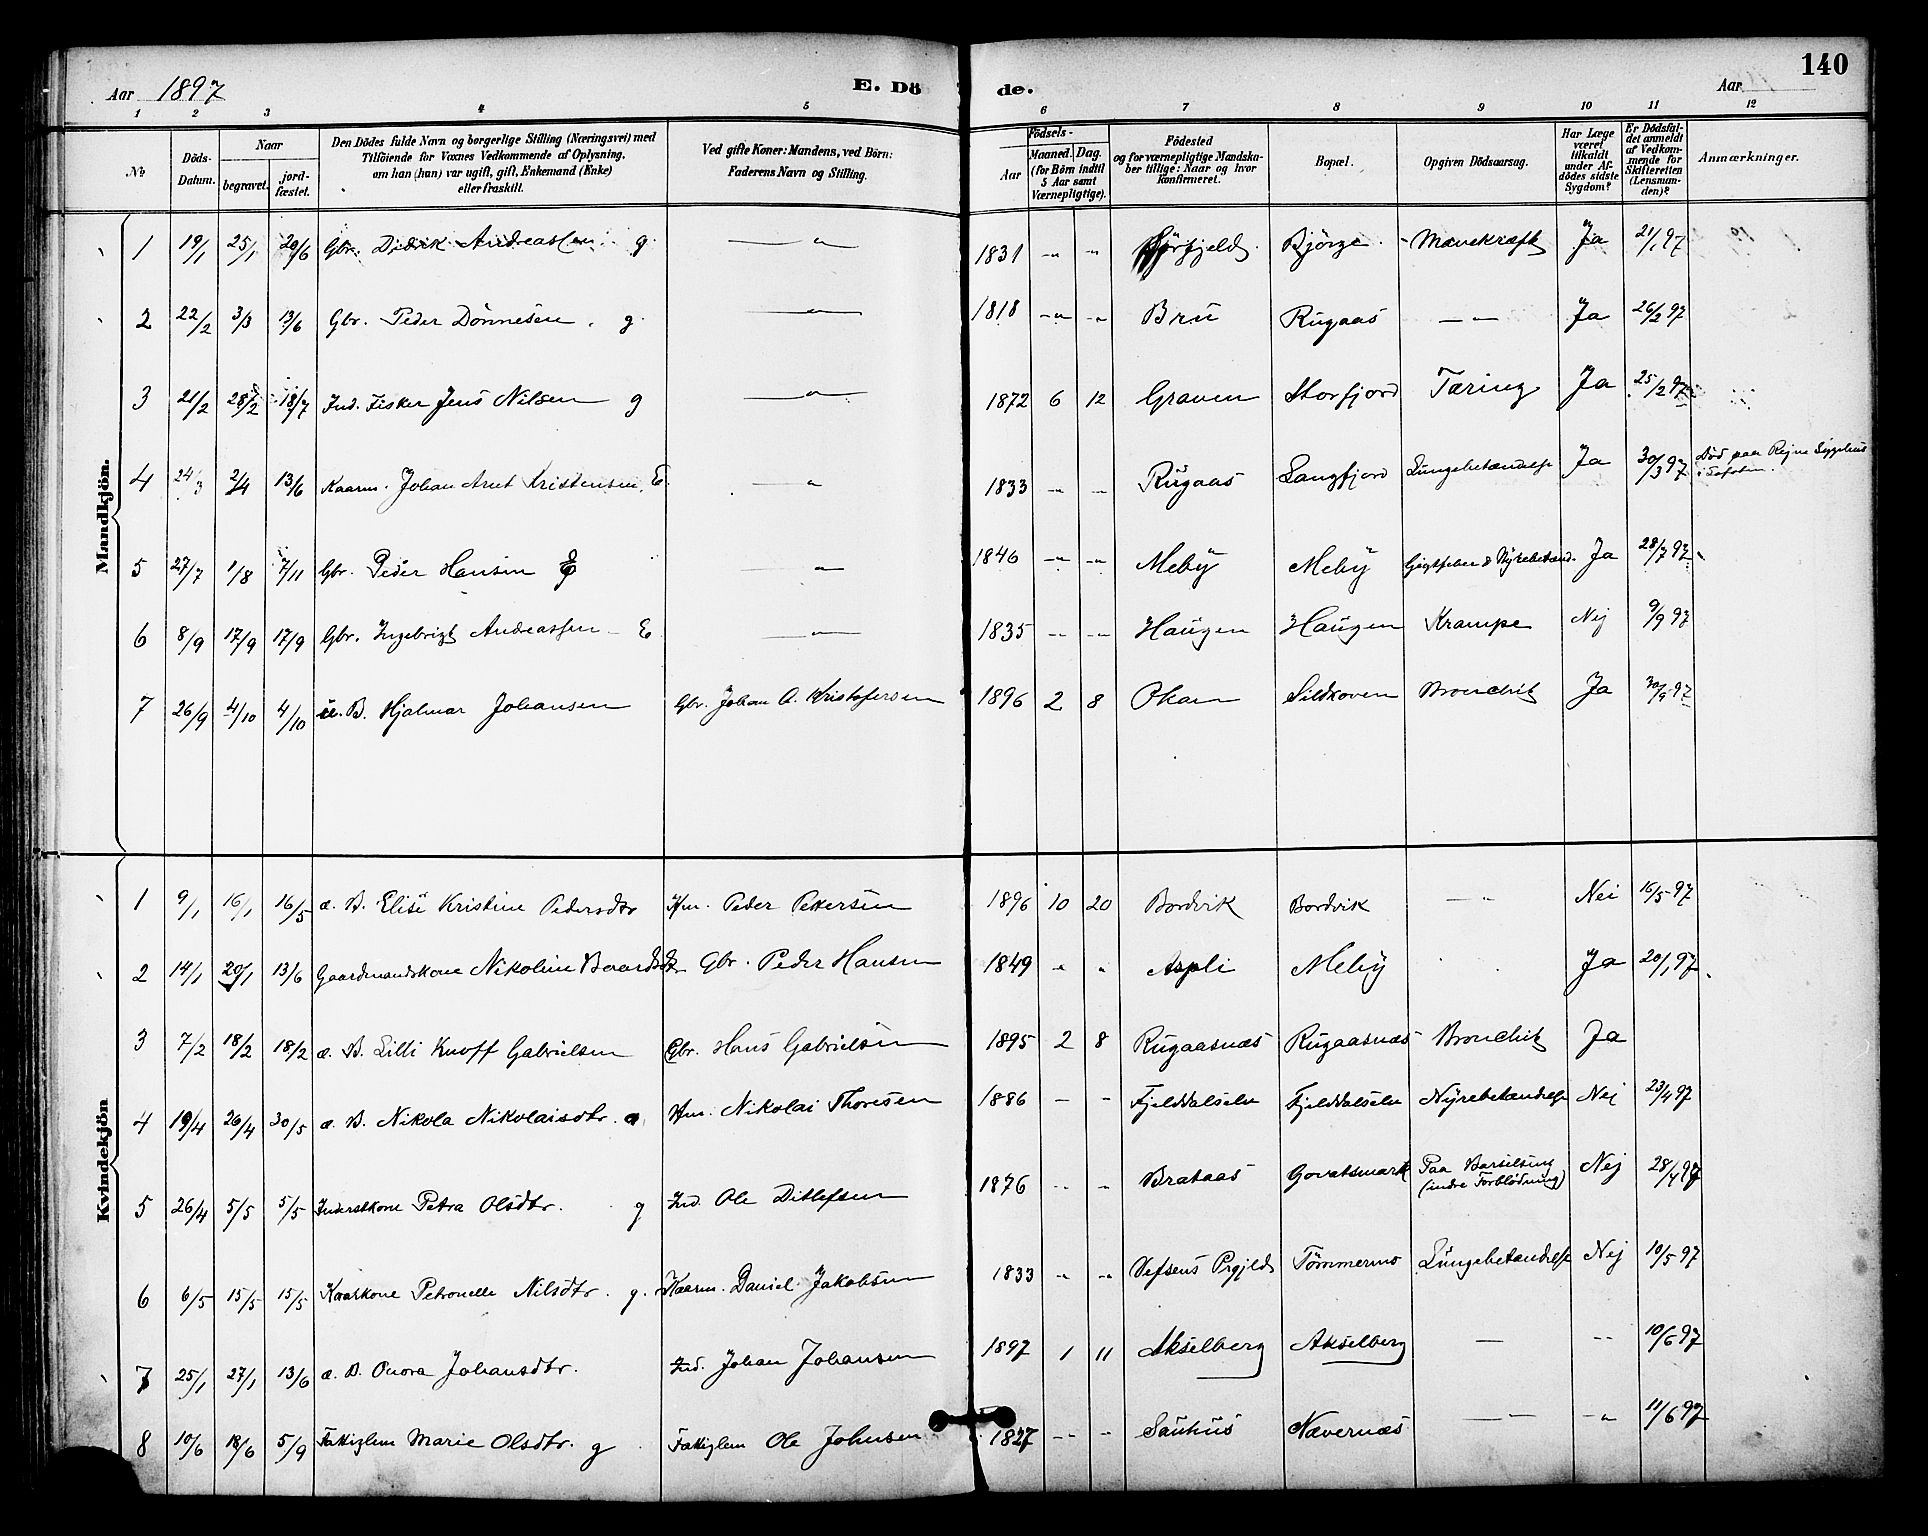 140
Aar 1897
E. Dö de.
Aar
1 2 3 4 5 6 7 8 9 10 11 12
No
Döds-Datum.
Naar
begravet.
jord-fæstet.
Den Dödes fulde Navn og borgerlige Stilling (Næringsvei) med
Tilföiende for Voxnes Vedkommende af Oplysning,
om han (hun) var ugift, gift, Enkemand (Enke)
eller fraskilt.
Ved gifte Koner: Mandens, ved Börn:
Faderens Navn og Stilling.
Födsels-
Aar
Maaned. Dag.
(for Börn indtil
5 Aar samt
Værnepligtige).
Födested
og for værnepligtige Mandska-
ber tillige: Naar og hvor
konfirmeret.
Bopæl.
Opgiven Dödsaarsag.
Har Læge
været
tilkaldt
under Af-
dödes sidste
Sygdom?
Er Dödsfal-
det anmeldt
af Vedkom-
mende for
Skifteretten
(Lensman-
den)?
Anmærkninger.
Mandkjön.
1 19/1 25/1 20/6 Gbr. Didrik Andreassen. g. — " 1831 - " - " Björge. Mavekræft Ja 21/1 97
2 22/2 3/3 13/6 Gbr. Peder Dönnesen. g — " 1818 - " - " Bru Rugaas — " Ja 26/2 97
3 21/2 28/2 18/7 Ind. Fisker Jens Nilsen g — " 1872 6 12 Graven Storfjord Tæring Ja 25/2 97
4 24/3 2/4 13/6 Kaarm. Johan Arnt Kristensen. E. — " 1833 - " - " Rugaas Langfjord Lungebetændelse Ja 30/3 97 Död paa Rejne Sygehus i Lofoten.
5 27/7 1/8 7/11 Gbr. Peder Hansen E — " 1846 - " - " Meby Meby Gigtfeber & Nyrebetænd. Ja 28/7 97
6 8/9 17/9 17/9 Gbr. Ingebrigt Andreassen - E. — " 1835 - " - " Haugen Haugen Krampe Nej 9/9 97
7 26/9 4/10 4/10 u. B. Hjalmar Johansen Gbr. Johan A. Kristofersen 1896 2 8 Okan Sildhoven Bronchit Ja 30/9 97
Kvindekjön
1 9/1 16/1 16/5 æ. B. Elise Kristine Pedersdtr Hm. Peder Pettersen 1896 10 20 Bordvik Bordvik — " Nei 16/5 97
2 14/1 20/1 13/6 Gaardmandskone Nikoline Gbr. Peder Hansen 1849 " " Aspli Meby Ja 20/1 97
3 7/2 18/2 18/2 æ. B. Lilli Knoff Gabrielsen Gbr. Hans Gabrielsen 1895 2 8 Rugaasnæs Rugaasnæs Bronchit Ja
4 19/4 26/4 30/5 æ. B. Nikola Nikolaisdtr. Hm. Nikolai Thoresen 1886 - - Fjelddalselv Fjelddalselv Nyrebetændelse Nej 23/4 97
5 26/4 5/5 5/5 Inderstkone Petra Olsdtr. g Ind. Ole Ditlefsen 1876 - " " Brataas Govatsmark Paa Barselseng (indre Forblödning) Nej 28/4 97
6 6/5 15/5 15/5 Kaarkone Petronelle Nilsdtr. g. Kaarm. Daniel Jakobsen 1833 " " Vefsens Prgjeld Tömmermo Lungebetændelse Nej 10/5 97
7 25/1 27/1 13/6 æ. B. Onora Johansdtr. Ind. Johan Johansen 1897 1 11 Akselberg Akselberg — - - 10/6 97
8 10/6 18/6 5/9 Fattiglem Marie Olsdtr. g. Fattiglem Ole Johnsen 1827 - - - Sauhus Nævernæs — " - " 11/6 97